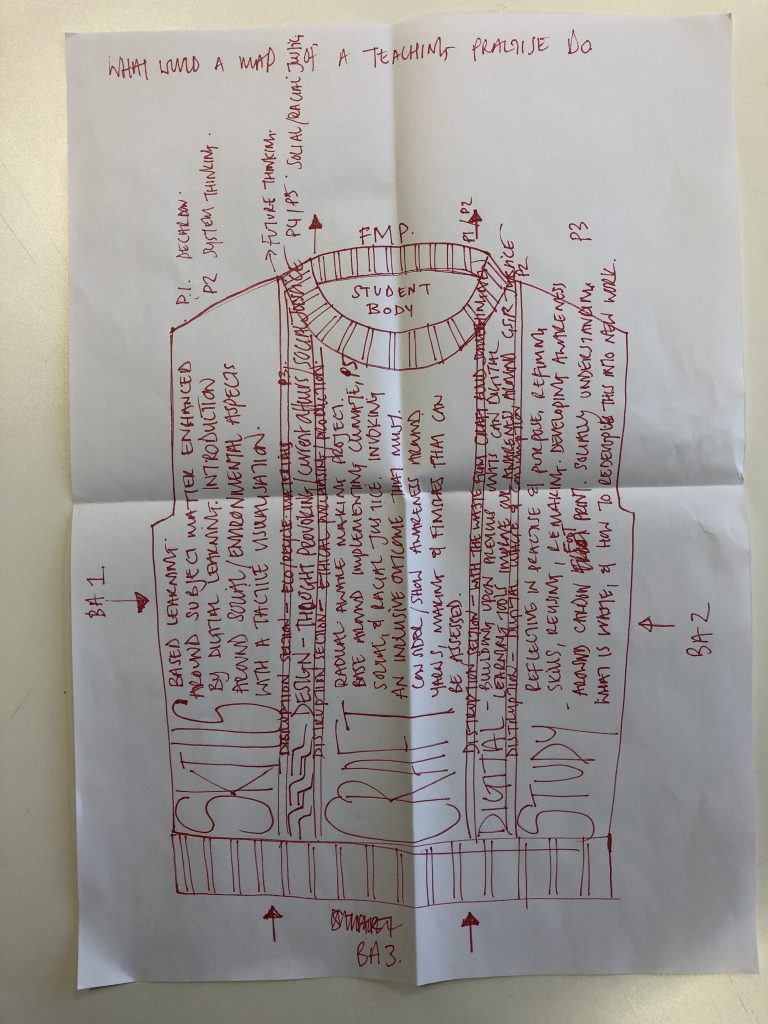 WHAT WOULD A MAP OF A TEACHING PRACTISE DO
P.1. DECARBON.
P2 SYSTEM THINKING.
→ FUTURE THINKING.
P4/P5. SOCIAL/RACIAL JUSTICE
FMP.
P1/P2
P3
P2
STUDENT
BODY
BA1.
SKILLS
BASED LEARNING.
AROUND SUBJECT MATTER ENHANCED
BY DIGITAL LEARNING. INTRODUCTION
AROUND SOCIAL/ENVIRONMENTAL ASPECTS
WITH A TACTILE VISUALISATION.
DISTRUPTION SECTION - ECO/RECYCLE MATERIALS P3.
DESIGN - THOUGHT PROVOKING/CURRENT AFFAIRS/SOCIAL JUSTICE
DISTRUPTION SECTION - ETHICAL PRODUCTION.
CRAFT
RADICAL AWARE MAKING PROJECT.
BASE AROUND IMPLEMENTING CLIMATE, P5
SOCIAL, & RACIAL JUSTICE. INVOKING
AN INCLUSIVE OUTCOME THAT MUST.
CONSIDER/SHOW AWARENESS AROUND.
YARNS, MAKING & FINISHES THAT CAN
BE ASSESSED.
DISTRUPTION SECTION - WITH THE WASTE FROM CRAFT BUILD SOMETHING
DIGITAL - BUILDING UPON ALL OTHER UNITS CAN DIGITAL
LEARNING TOOLS IMPROVE OUR AWARENESS AROUND JUSTICE
DISTRUPTION - DIGITAL WASTE &
STUDY
REFLECTIVE IN PRACTICE & PURPOSE, REFINING
SKILLS, REUSING, REMAKING. DEVELOPING AWARENESS
- AROUND CARBON FOOT PRINT. SOCIALLY UNDERSTANDING
WHAT IS WASTE, & HOW TO REDEVELOPE THIS INTO NEW WORK.
BA2
BA3.